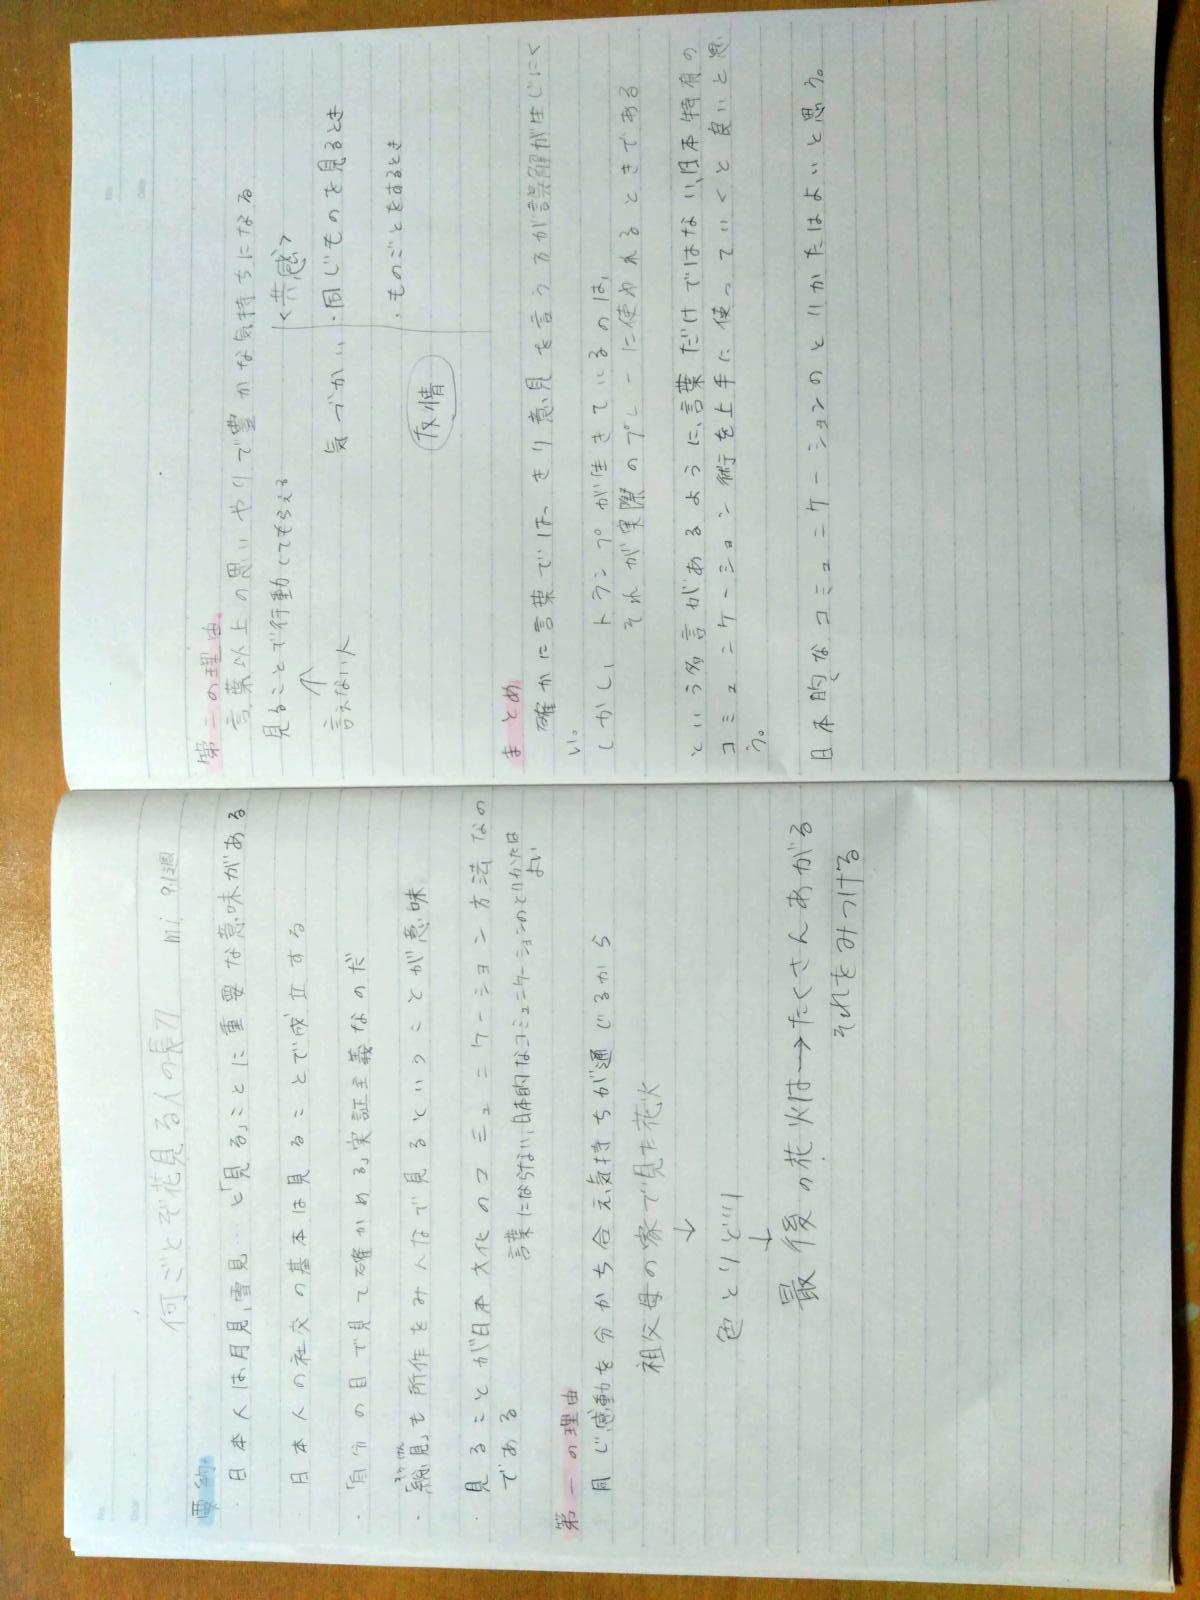 何ごとぞ花見る人の長刀 mi 9.1週
要約
・日本人は月見、雪見…と「見る」ことに重要な意味がある
・日本人の社交の基本は見ることで成立する
・「自分の目で見て確かめる」実証主義なのだ
・「総見」も所作をみんなで見るということが意味
・見ることが日本文化のコミュニケーション方法なの
である
言葉にならない、日本的なコミュニケーションのとりかたは
よい
第一の理由
同じ感動を分かち合え気持ちが通じるから
祖父母の家で見た花火
↓
色とりどり
↓
最後の花火は→たくさんあがる
それをみつける
第二の理由
言葉以上の思いやりで豊かな気持ちになる
見ることで行動してもらえる
↑
言えない人
気づかい
<共感>
・同じものを見るとき
・ものごとをするとき
友情
まとめ
確かに言葉ではっきり意見を言う方が誤解が生じにく
い。
しかし、トランプが生きているのは、
それが実際のプレーに使われるときである
という名言があるように、言葉だけではない、日本特有の
コミュニケーション術を上手に使っていくと良いと思
う。
日本的なコミュニケーションのとりかたはよいと思う。